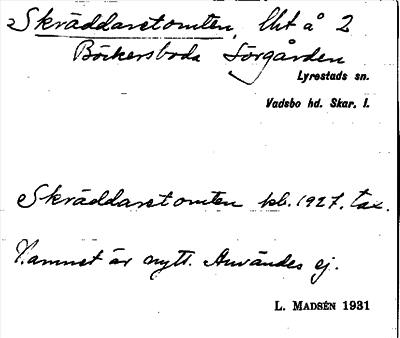 Skräddaretomten, lht å 2
Böckersboda Torgården
Lyrestads sn.
Vadsbo hd. Skar. l.
Skräddaretomten kb. 1927. tax.
Namnet är nytt. Användes ej.
L. Madsén 1931